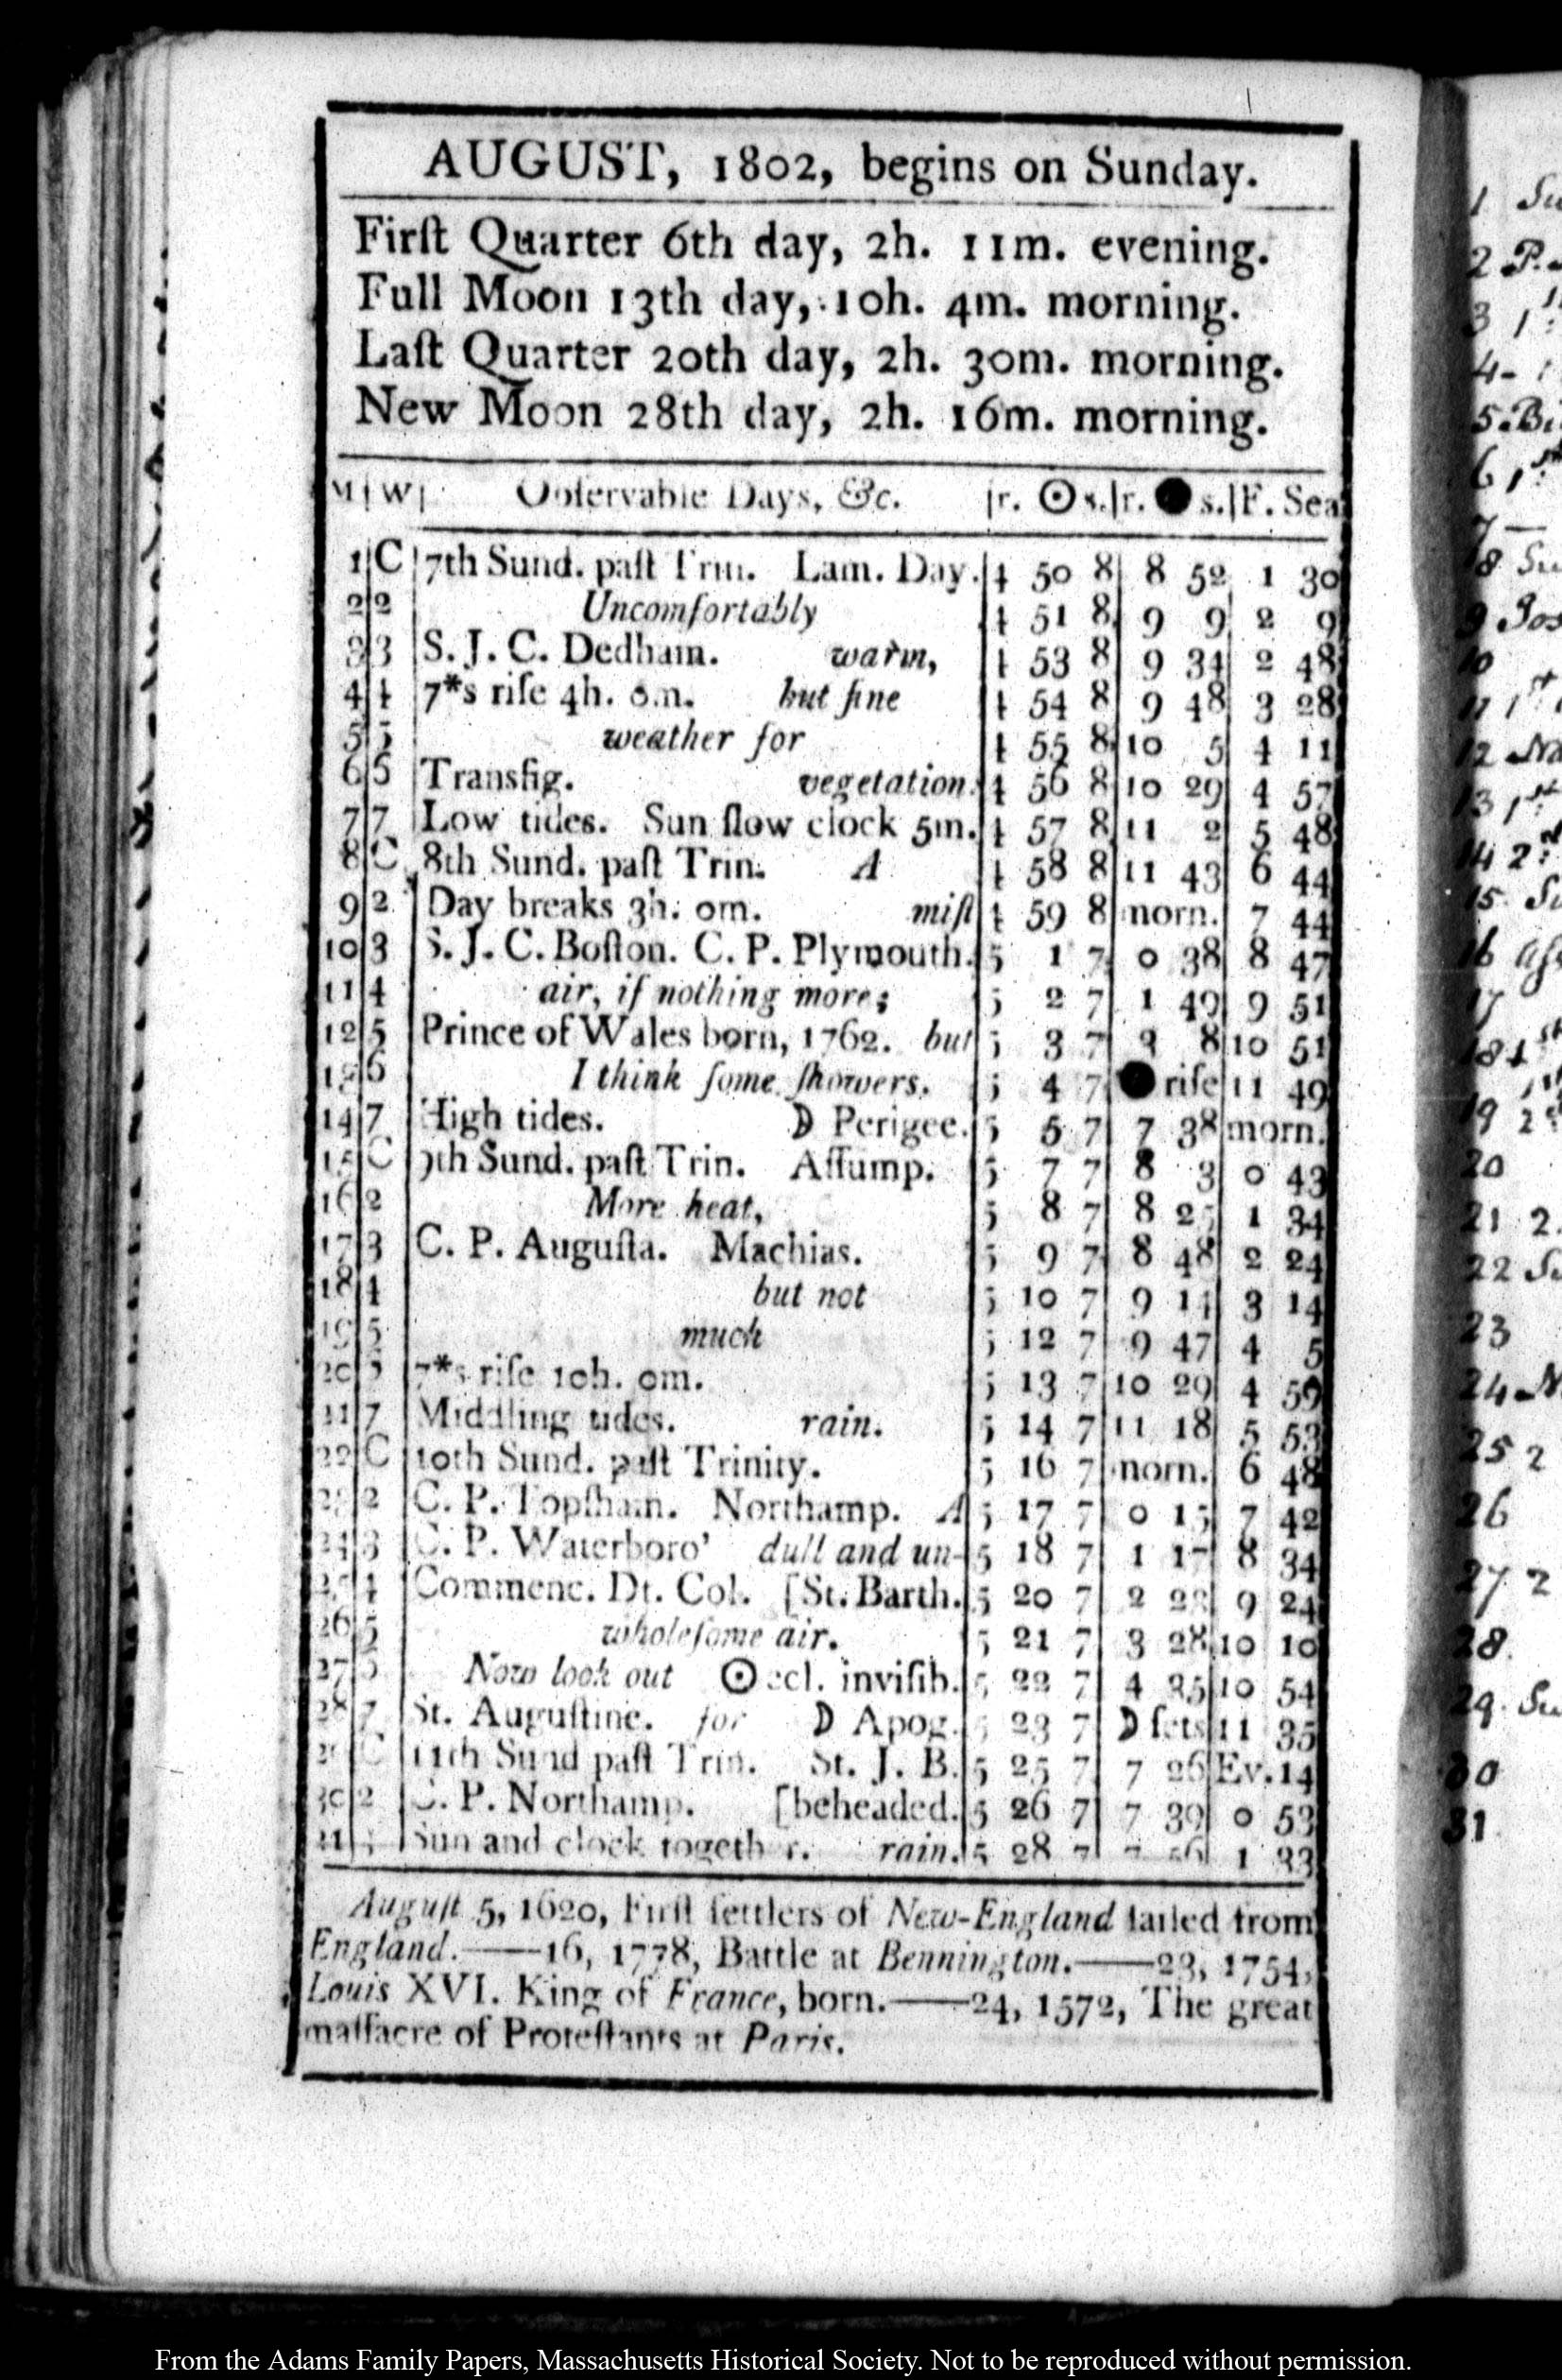 AUGUST, 1802, begins on Sunday.
Firſt Quarter 6th day, 2h. 11m. evening.
Full Moon 13th day, 10h. 4m. morning.
Laſt Quarter 20th day, 2h. 30m. morning.
New Moon 28th day, 2h. 16m. morning.
M|W| Obſervable Days, &c. |r. ☉ s.|r. ● s.|F. Sea
1|C|7th Sund. paſt Trin. Lam. Day.|4 50 8| 8 52| 1 30
2|2| Uncomfortably |4 51 8| 9 9| 2 9
3|3|S. J. C. Dedham. warm, |4 53 8| 9 34| 2 48
4|4|7*s riſe 4h. m. but fine |4 54 8| 9 48| 3 28
5|5| weather for |4 55 8|10 5| 4 11
6|6|Transfig. vegetation.|4 56 8|10 29| 4 57
7|7|Low tides. Sun ſlow clock 5m.|4 57 8|11 2| 5 48
8|C|8th Sund. paſt Trin. A |4 58 8|11 43| 6 44
9|2|Day breaks 3h. 0m. miſt|4 59 8|morn.| 7 44
10|3|S. J. C. Boſton. C. P. Plymouth.|5 1 7| 0 38| 8 47
11|4| air, if nothing more; |5 2 7| 1 49| 9 51
12|5|Prince of Wales born, 1762. but|5 3 7| 8|10 51
13|6| I think ſome ſhowers. |5 4 7|● riſe|11 49
14|7|High tides. ☽ Perigee.|5 5 7| 7 38|morn.
15|C|9th Sund. paſt Trin. Aſſump. |5 7 7| 8 3| 0 43
16|2| More heat, |5 8 7| 8 25| 1 34
17|3|C. P. Auguſta. Machias. |5 9 7| 8 48| 2 24
18|4| but not |5 10 7| 9 14| 3 14
19|5| much |5 12 7| 9 47| 4 5
20|6|7*s riſe 10h. 0m. |5 13 7|10 29| 4 59
21|7|Middling tides. rain. |5 14 7|11 18| 5 53
22|C|10th Sund. paſt Trinity. |5 16 7|morn.| 6 48
23|2|C. P. Topſham. Northamp. A|5 17 7| 0 15| 7 42
24|3|C. P. Waterboro' dull and un-|5 18 7| 1 17| 8 34
25|4|Commenc. Dt. Col. [St. Barth.|5 20 7| 2 23| 9 24
26|5| wholeſome air. |5 21 7| 3 28|10 10
27|6| Now look out ☉ecl. inviſib.|5 22 7| 4 35|10 54
28|7|St. Auguſtine. for ☽ Apog.|5 23 7|☽ ſets|11 35
29|C|11th Sund paſt Trin. St. J. B.|5 25 7| 7 26|Ev.14
30|2|C. P. Northamp. [beheaded.|5 26 7| 7 39| 0 53
31|3|Sun and clock together. rain.|5 28 7| 7 56| 1 33
Auguſt 5, 1620, Firſt ſettlers of New-England ſailed from
England.——16, 1778, Battle at Bennington.——23, 1754,
Louis XVI. King of France, born.——24, 1572, The great
maſſacre of Proteſtants at Paris.
1
2 P.
3 1
4
5
6 1st
7
8 Su
9 Jos
10
11 1st
12
13 1st
14 2d
15 Su
16
17
18 1st
19
20
21 2.
22 Su
23
24
25 2
26
27 2
28.
29. Su
30
31
From the Adams Family Papers, Massachusetts Historical Society. Not to be reproduced without permission.